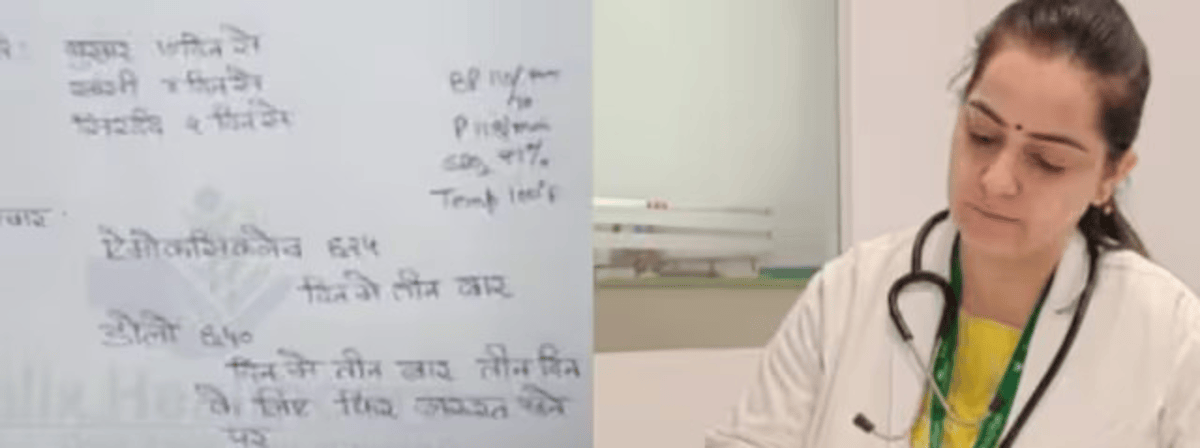 बुखार दिन से
खांसी दिन से
सिरदर्द ५ दिन से
BP 110/mm
70
P 110/mm
SPO₂ %
Temp 100°F
चार
ऐमोक्सिक्लेव ६२५
दिन में तीन बार
डोलो ६५०
दिन में तीन बार तीन दिन
के लिए फिर जरूरत होने
पर